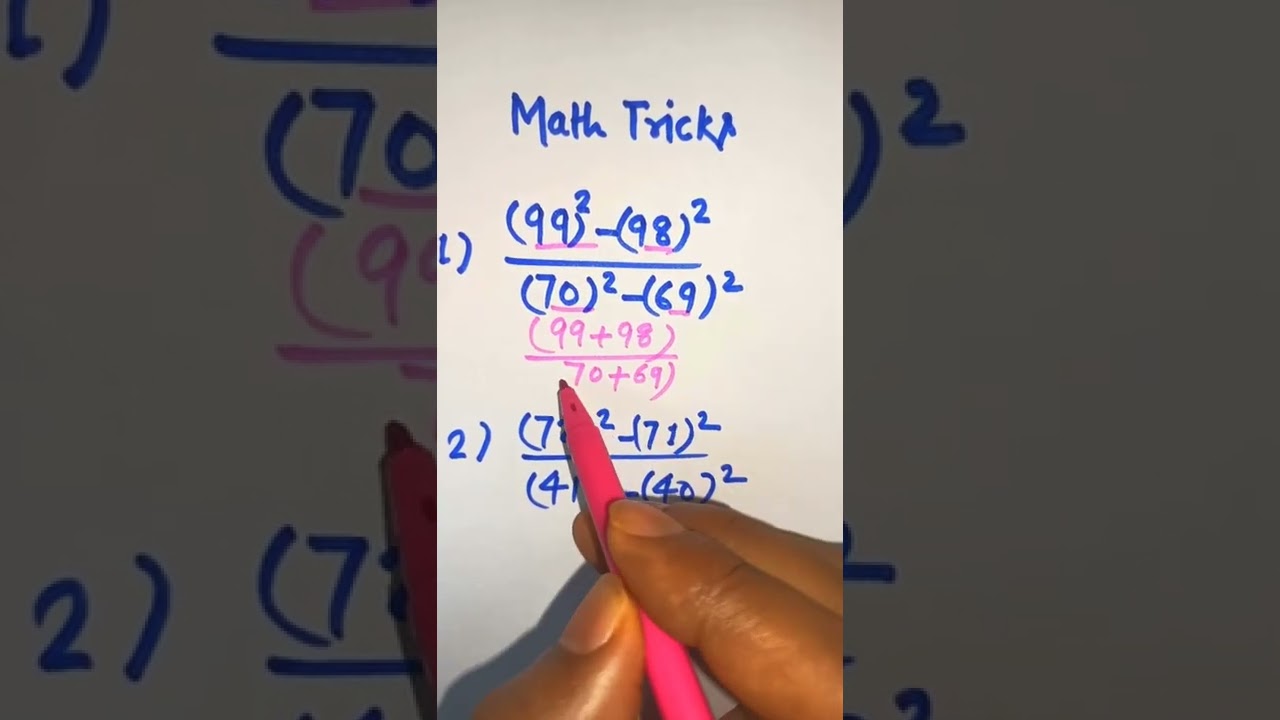 Math Tricks
1) (99)²-(98)²
(70)²-(69)²
(99+98)
70+69)
2) (7 ²-(71)²
(41 -(40)²